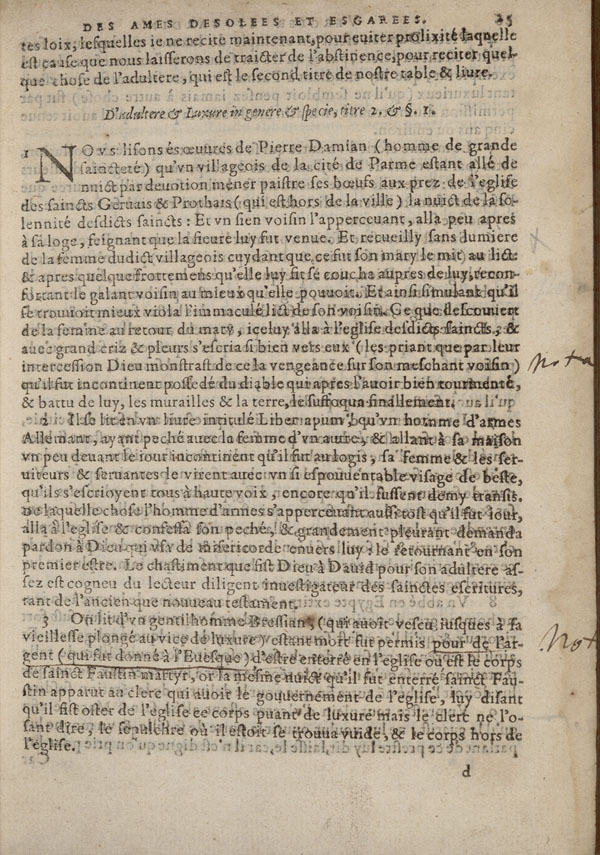 DES AMES DESOLEES ET ESGAREES. 25
tes loix, lesquelles ie ne recite maintenant, pour euiter prolixité laquelle
est cause que nous laisserons de traicter de l'abstinence, pour reciter quel-
que chose de l'adultere, qui est le second titre de nostre table & liure.
D'adultere & Luxure in genere & specie, titre 2. & §. 1.
1 NOvs lisons és œuures de Pierre Damian (homme de grande
saincteté) qu'vn villageois de la cité de Parme estant allé de
nuict par deuotion mener paistre ses bœufs aux prez de l'eglise
des saincts Geruais & Prothais (qui est hors de la ville) la nuict de la so-
lennité desdicts saincts: Et vn sien voisin l'apperceuant, alla peu apres
à sa loge, feignant que la fieure luy fut venue. Et recueilly sans lumiere
de la femme dudict villageois cuydant que ce fut son mary le mit au lict
& apres quelque frottemens qu'elle luy fit se coucha aupres de luy, recon-
fortant le galant voisin au mieux qu'elle pouuoit. Et ainsi simulant qu'il
se trouuoit mieux viola l'immaculé lict de son voisin. Ce que descouuert
de la femme au retour du mary, iceluy alla à l'eglise desdicts saincts, &
auec grand criz & pleurs s'escria si bien vers eux (les priant que par leur
intercession Dieu monstrast de ce la vengeance sur son meschant voisin)
Nota
qu'il fut incontinent possedé du diable qui apres l'auoir bien tourmenté,
& battu de luy, les murailles & la terre, le suffoqua finallement.
2 Il se lit en vn liure intitulé Liber apum, qu'vn homme d'armes
Allemant, ayant peché auec la femme d'vn autre, & allant à sa maison
vn peu deuant le iour incontinent qu'il fut au logis, sa femme & les ser-
uiteurs & seruantes le virent auec vn si espouuentable visage de beste,
qu'ils s'escrioyent tous à haute voix, encore qu'il fussent demy transis.
De laquelle chose l'homme d'armes s'apperceuant aussi tost qu'il fut iour,
alla à l'eglise & confessa son peché, & grandement pleurant demanda
pardon à Dieu qui vsr de misericorde enuers luy, le retournant en son
premier estre. Le chastiment que fist Dieu à Dauid pour son adultere as-
sez est cogneu du lecteur diligent inuestigateur des sainctes escritures,
tant de l'ancien que nouueau testament.
3 On lit d'vn gentil homme Bressian, (qui auoit vescu iusques à sa
vieillesse plongé au vice de luxure) y estant mort fut permis pour de l'ar-
Not
gent (qui fut donné à l'Euesque) d'estre enterré en l'eglise ou est le corps
de sainct Faustin martyr, or la mesme nuict qu'il fut enterré sainct Fau-
stin apparut au clerc qui auoit le gouuernement de l'eglise, luy disant
qu'il fist oster de l'eglise ce corps puant de luxure mais le clerc ne l'o-
sant dire, le sepulchre où il estoit se trouua vuide, & le corps hors de
l'eglise.
d